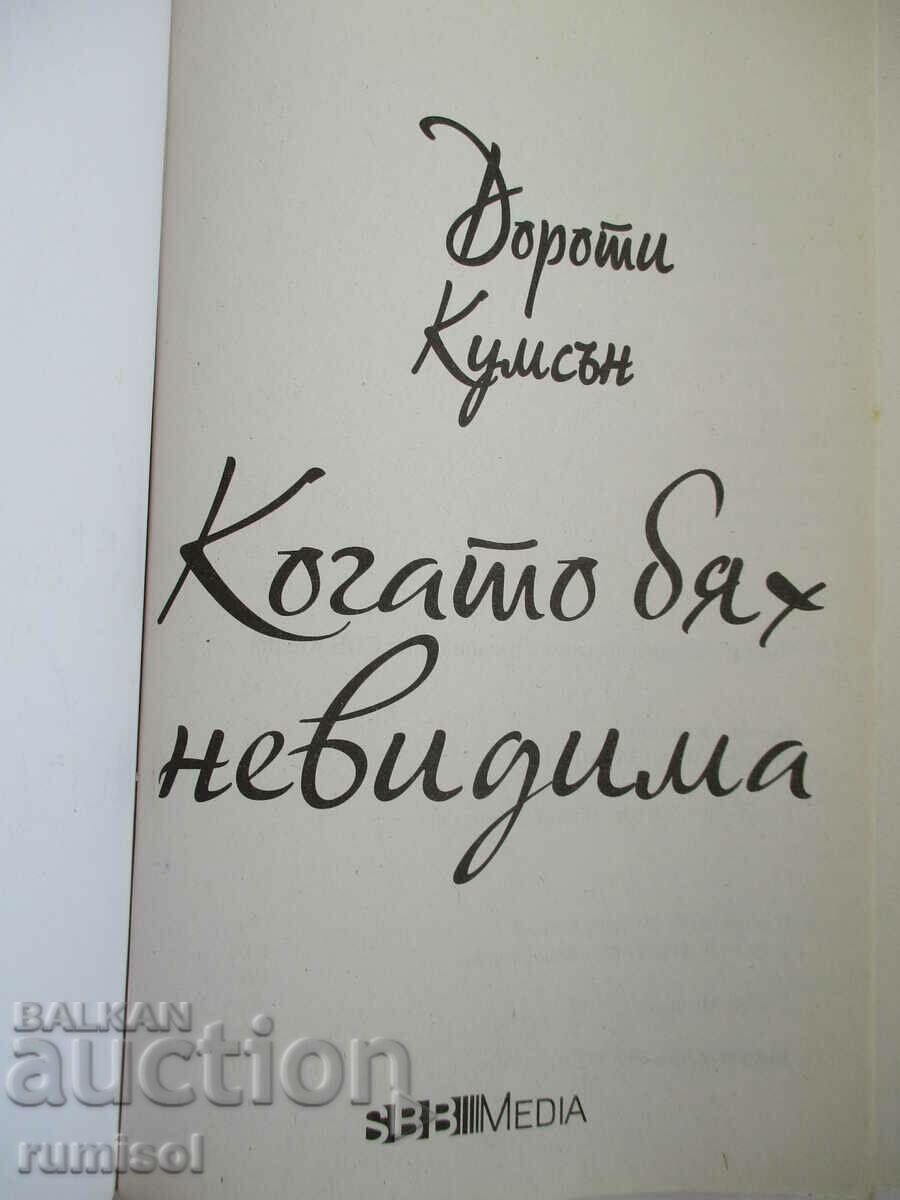 Дороти
Кумсън
Когато бях
невидима
BALKAN
auction
rumisol
SBB MEDIA